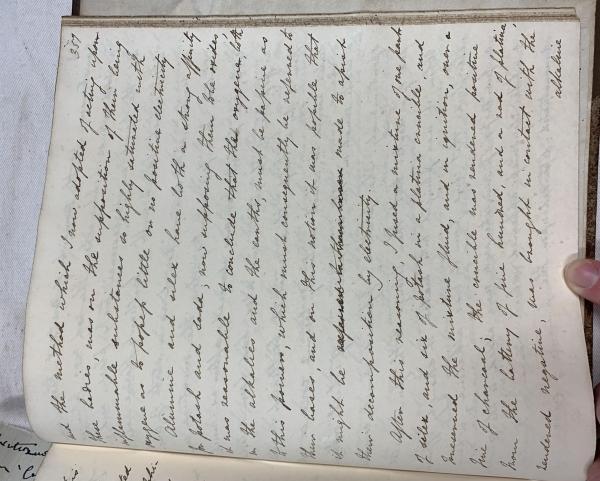 357
at the method which I now adopted of acting upon
these bodies, was on the supposition of their being
inflammable substances so highly saturated with
oxygene as to possess little or no positive electricity.
Alumine and silex have both a strong affinity
for potash and soda; now supposing them to be oxides
it was reasonable to conclude that the oxygene, both
in the alkalies and the earths, must be passive as
to this power, which must consequently be referred to
their bases, and on this notion it was possible that
it might be made to assist
their decomposition by electricity.
After this reasoning, I fused a mixture of one part
of silex and six of potash in a platina crucible, and
preserved the mixture fluid, and in ignition, over a
fire of charcoal; the crucible was rendered positive
from the battery of five hundred, and a rod of platina,
rendered negative, was brought in contact with the
alkaline